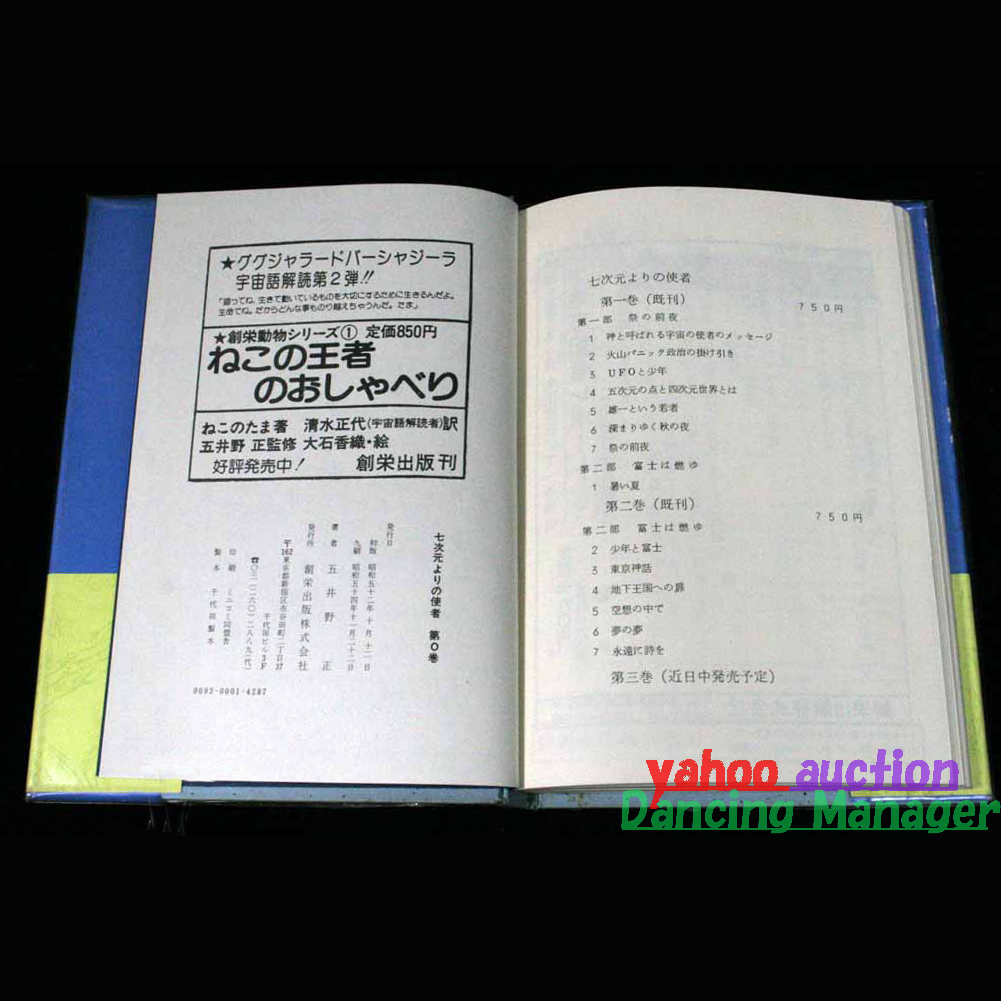 ★ググジャラードバーシャジーラ
宇宙語解読第2弾!!
「翔ってね,生きて動いているものを大切にするために生きるんだよ。
生命でね。だからどんな事ものり越えちゃうんだ。たま」
★創栄動物シリーズ① 定価850円
ねこの王者
のおしゃべり
ねこのたま著 清水正代(宇宙語解読者)訳
五井野 正監修 大石香織・絵
好評発売中! 創栄出版刊
七次元よりの使者 第0巻
発行日 初版 昭和五十二年 十月 十一日
九刷 昭和五十四年十一月二十二日
著者 五井野 正
発行所 創栄出版株式会社
〒162東京都新宿区市谷田町二丁目37
千代田ビル3F
☎〇三(二六〇)二八八九(代)
印刷 ミニコミ同盟舎
製本 千代田製本
0093-0001-4287
七次元よりの使者
第一巻(既刊) 750円
第一部 祭の前夜
1 神と呼ばれる宇宙の使者のメッセージ
2 火山パニック政治の掛け引き
3 UFOと少年
4 五次元の点と四次元世界とは
5 雄一という若者
6 深まりゆく秋の夜
7 祭の前夜
第二部 富士は燃ゆ
1 暑い夏
第二巻(既刊) 750円
第二部 富士は燃ゆ
2 少年と富士
3 東京神話
4 地下王国への扉
5 空想の中で
6 夢の夢
7 永遠に詩を
第三巻(近日中発売予定)
yahoo auction
Dancing Manager